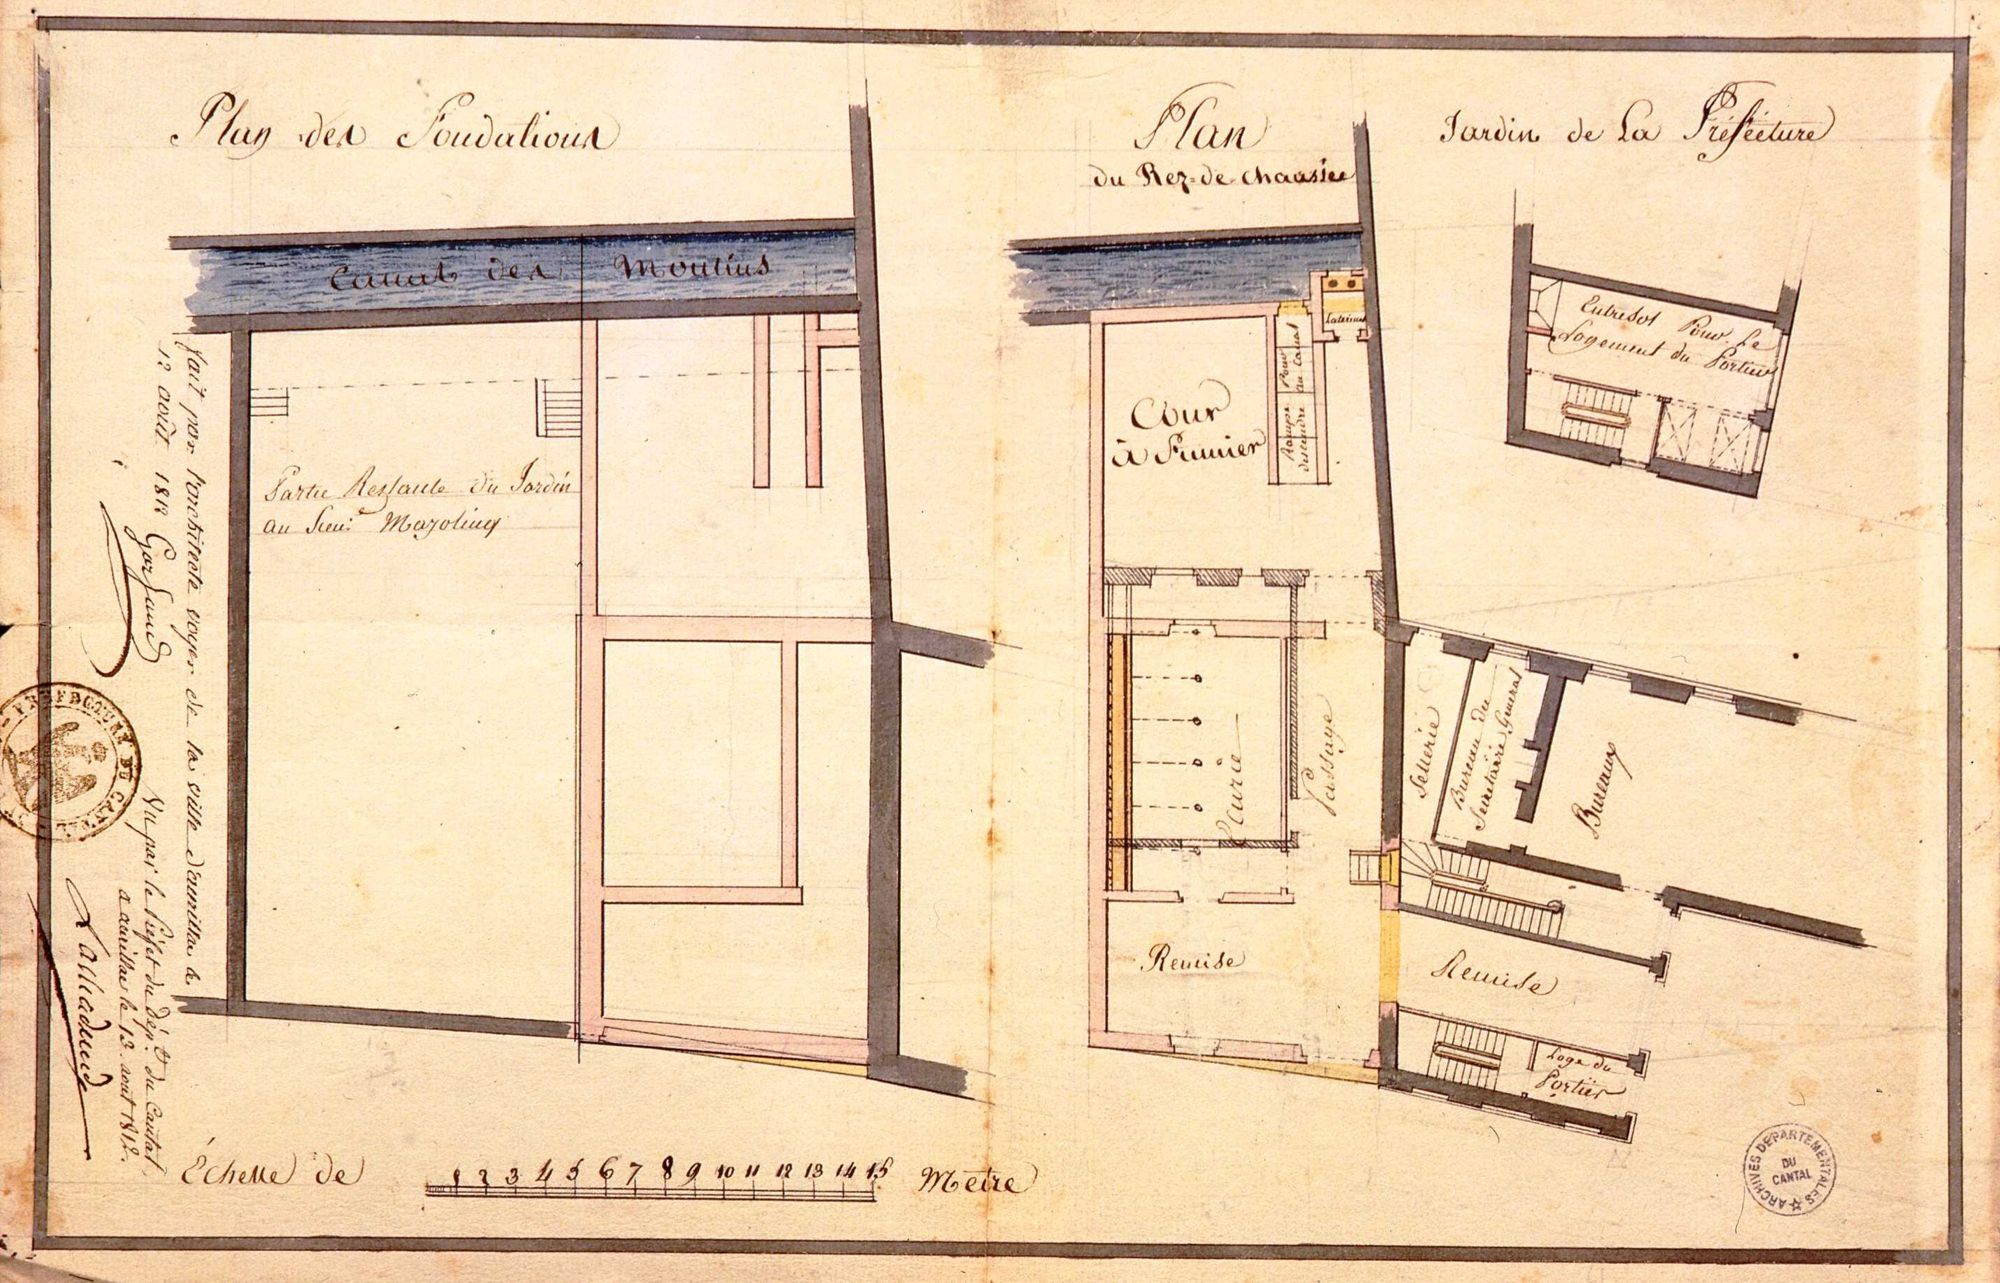 Plan des Fondations
Plan
du Rez=de chaussée
Jardin de La Préfécture
Canal des Moulins
Latrines
Rampe pour
descendre au Canal
Entresol Pour Le
Logement du Portier
Cour
à Fumier
Partie Restante du Jardin
au Sieur Mazolier
fait par l'architecte voyer de la ville d'aurillac le
12 août 1812
PREFECTURE DU CANTAL
Vu par le Préfet du Dép.t du Cantal.
a aurillac le 13. août 1812.
Ecurie
Passage
Sellerie
Bureau du
Secrétaire Général
Bureaux
Remise
Remise
Loge du
Portier
Échelle de
1 2 3 4 5 6 7 8 9 10 11 12 13 14 15
Métre
ARCHIVES DEPARTEMENTALES
DU
CANTAL